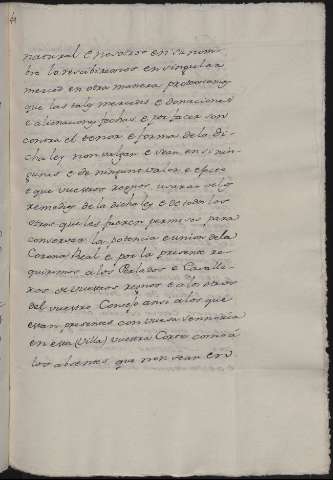 natural e nosotros en su nom-
bre lo rescibiremos en singular
merced en otra manera protestamos
que las tales mercedes e donaciones
e alienaciones fechas e por facer son
contra el tenor e forma de la di-
cha ley non valgan e sean en si nin-
gunas e de ningunt valor e efecto
e que vuestros regnos usaran de los
remedios de la dicha ley e de todos los
otros que les fueren permisos para
conservar la potencia e union de la
Corona Real e por la presente re-
quirimos a los Perlados e Cavalle-
ros de vuestros regnos e a los otros
del vuestro Consejo ansi a los que
estan presentes con vuesa Sennoria
en esta (Villa) vuestra Corte como a
los absentes que non sean en